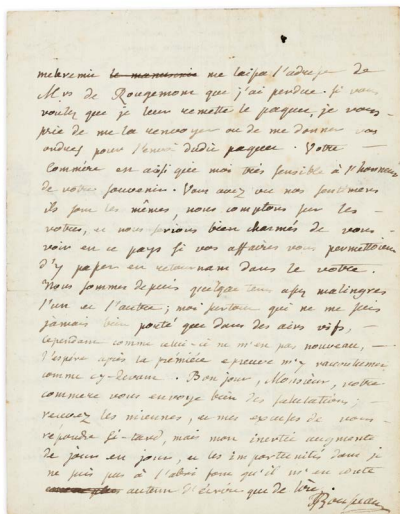 me remit le manuscrit me laissa l'adresse de
Mrs de Rougemont que j'ai perdue. Si vous
voulez que je leur remette le paquet, je vous
prie de me la renvoyer ou de me donner vos
ordres pour l'envoi dudit paquet. Votre
Commére est ainsi que moi très sensible à l'honneur
de votre souvenir. Vous avez vu nos sentimens
ils sont les mêmes, nous comptons sur les
votres, et nous serions bien charmés de vous
voir en ce pays si vos affaires vous permettoient
d'y passer en retournant dans le votre.
Nous sommes depuis quelque tems assez malingres
l'un et l'autre; moi surtout qui ne me suis
jamais bien porté que dans des airs vifs,
cependant comme celui-ci ne m'est pas nouveau,
j'espére après la prémiére epreuve m'y raccoutumer
comme cy-devant. Bonjour, Monsieur, votre
commere vous envoye bien des salutations;
recevez les miennes, et mes excuses de vous
répondre si tard, mais mon inertie augmente
de jour en jour, et les importunités dont je
ne suis pas à l'abri font qu'il m'en coute
autant d'écrire que de lire.